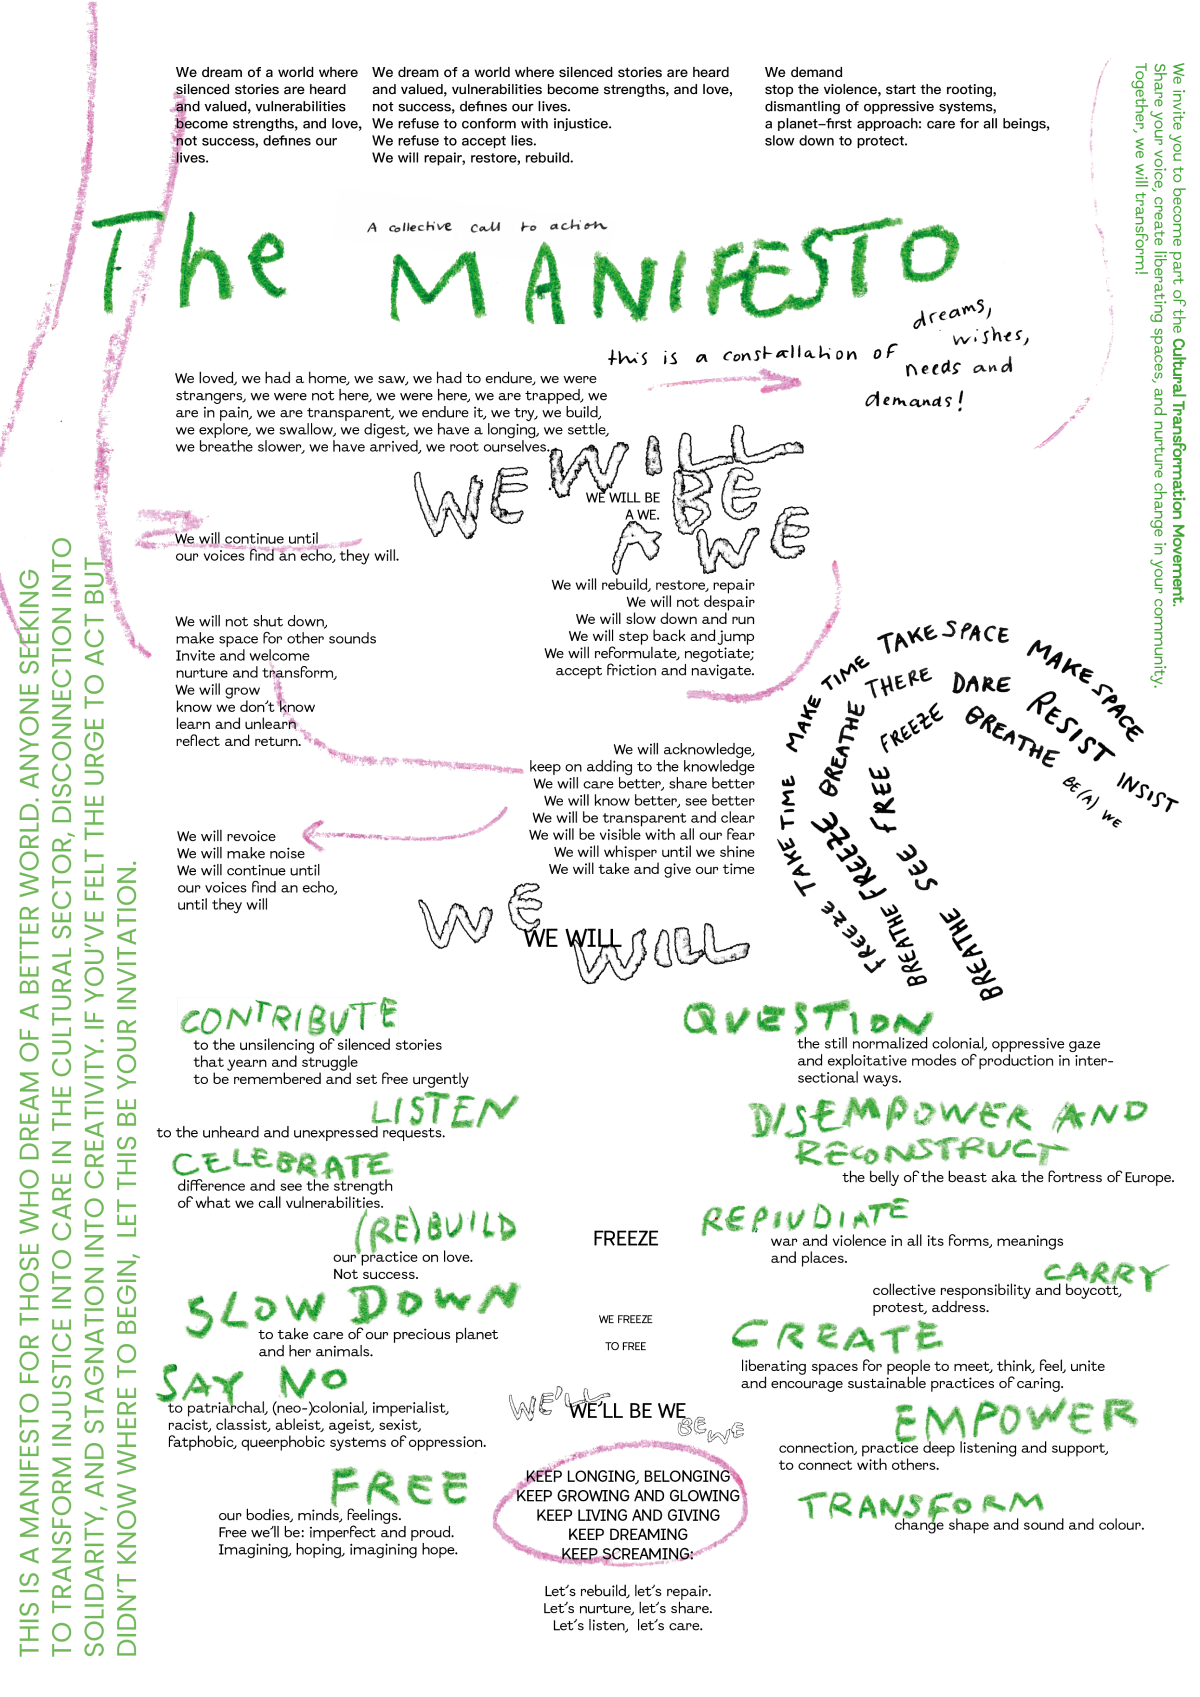 We dream of a world where
silenced stories are heard
and valued, vulnerabilities
become strengths, and love,
not success, defines our
lives.
We dream of a world where silenced stories are heard
and valued, vulnerabilities become strengths, and love,
not success, defines our lives.
We refuse to conform with injustice.
We refuse to accept lies.
We will repair, restore, rebuild.
We demand
stop the violence, start the rooting,
dismantling of oppressive systems,
a planet-first approach: care for all beings,
slow down to protect.
We invite you to become part of the Cultural Transformation Movement.
Share your voice, create liberating spaces, and nurture change in your community.
Together, we will transform!
A collective call to action
The MANIFESTO
this is a constallation of
dreams,
wishes,
needs and
demands!
We loved, we had a home, we saw, we had to endure, we were
strangers, we were not here, we were here, we are trapped, we
are in pain, we are transparent, we endure it, we try, we build,
we explore, we swallow, we digest, we have a longing, we settle,
we breathe slower, we have arrived, we root ourselves.
WE WILL BE
A WE
WE WILL BE
A WE.
We will continue until
our voices find an echo, they will.
We will rebuild, restore, repair
We will not despair
We will slow down and run
We will step back and jump
We will reformulate, negotiate;
accept friction and navigate.
We will not shut down,
make space for other sounds
Invite and welcome
nurture and transform,
We will grow
know we don't know
learn and unlearn
reflect and return.
We will acknowledge,
keep on adding to the knowledge
We will care better, share better
We will know better, see better
We will be transparent and clear
We will be visible with all our fear
We will whisper until we shine
We will take and give our time
We will revoice
We will make noise
We will continue until
our voices find an echo,
until they will
FREEZE TAKE TIME MAKE TIME TAKE SPACE MAKE SPACE
BREATHE FREEZE BREATHE THERE DARE RESIST INSIST
BREATHE SEE FREE FREEZE BREATHE BE(A) WE
WE WILL
WE WILL
CONTRIBUTE
to the unsilencing of silenced stories
that yearn and struggle
to be remembered and set free urgently
LISTEN
to the unheard and unexpressed requests.
CELEBRATE
difference and see the strength
of what we call vulnerabilities.
(RE)BUILD
our practice on love.
Not success.
SLOW DOWN
to take care of our precious planet
and her animals.
SAY NO
to patriarchal, (neo-)colonial, imperialist,
racist, classist, ableist, ageist, sexist,
fatphobic, queerphobic systems of oppression.
FREE
our bodies, minds, feelings.
Free we'll be: imperfect and proud.
Imagining, hoping, imagining hope.
FREEZE
WE FREEZE
TO FREE
WE'LL
BE WE
WE'LL BE WE
KEEP LONGING, BELONGING
KEEP GROWING AND GLOWING
KEEP LIVING AND GIVING
KEEP DREAMING
KEEP SCREAMING:
Let's rebuild, let's repair.
Let's nurture, let's share.
Let's listen, let's care.
QUESTION
the still normalized colonial, oppressive gaze
and exploitative modes of production in inter-
sectional ways.
DISEMPOWER AND
RECONSTRUCT
the belly of the beast aka the fortress of Europe.
REPIUDIATE
war and violence in all its forms, meanings
and places.
CARRY
collective responsibility and boycott,
protest, address.
CREATE
liberating spaces for people to meet, think, feel, unite
and encourage sustainable practices of caring.
EMPOWER
connection, practice deep listening and support,
to connect with others.
TRANSFORM
change shape and sound and colour.
THIS IS A MANIFESTO FOR THOSE WHO DREAM OF A BETTER WORLD. ANYONE SEEKING
TO TRANSFORM INJUSTICE INTO CARE IN THE CULTURAL SECTOR, DISCONNECTION INTO
SOLIDARITY, AND STAGNATION INTO CREATIVITY. IF YOU'VE FELT THE URGE TO ACT BUT
DIDN'T KNOW WHERE TO BEGIN, LET THIS BE YOUR INVITATION.